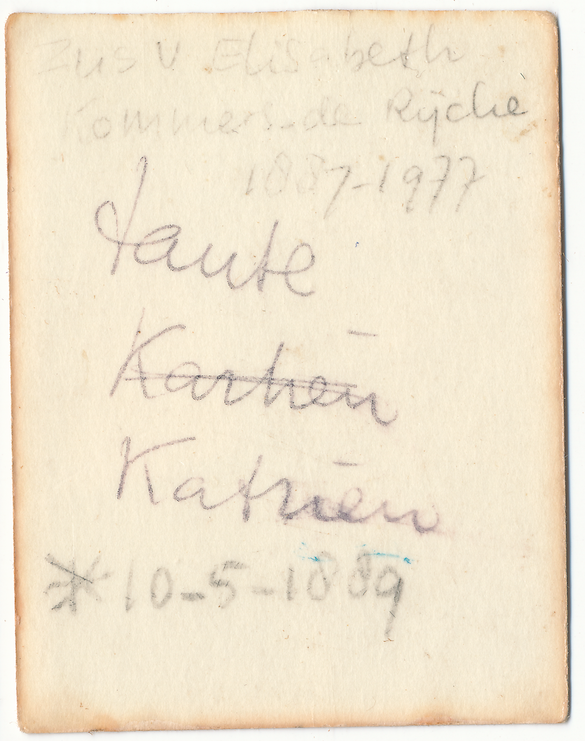 Zus v Elisabeth
Kommers-de Rijcke
1887-1977
tante
Katrien
* 10-5-1889